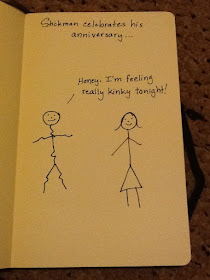 Stickman celebrates his
anniversary...
Honey. I'm feeling
really kinky tonight!